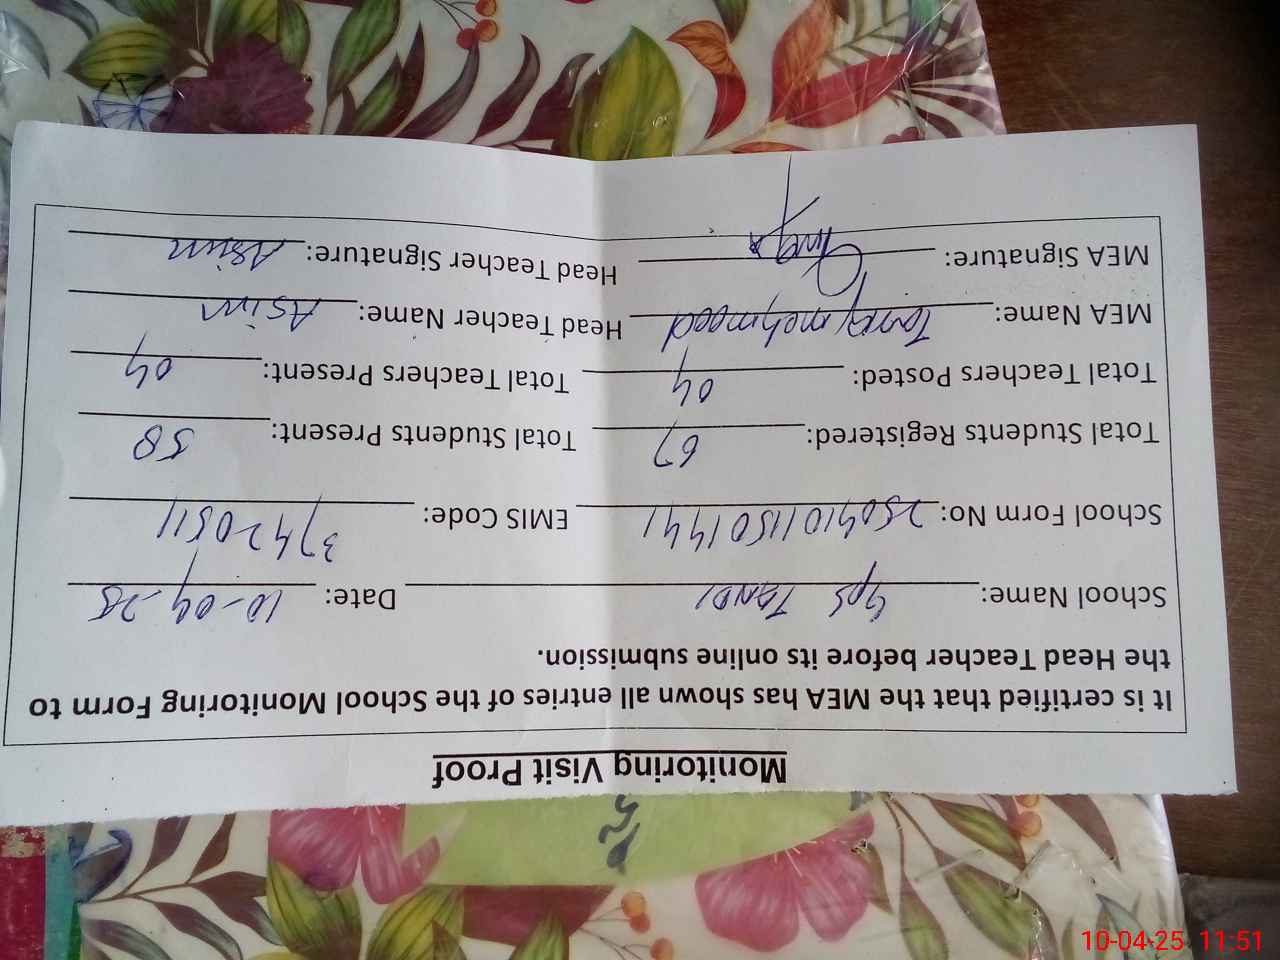 Monitoring Visit Proof
It is certified that the MEA has shown all entries of the School Monitoring Form to
the Head Teacher before its online submission.
School Name: GPS TANDI Date: 10-04-25
School Form No: 25041011501441 EMIS Code: 37420511
Total Students Registered: 67 Total Students Present: 58
Total Teachers Posted: 04 Total Teachers Present: 04
MEA Name: mehmood Head Teacher Name: Asim
MEA Signature: Head Teacher Signature: Asim
10-04-25 11:51